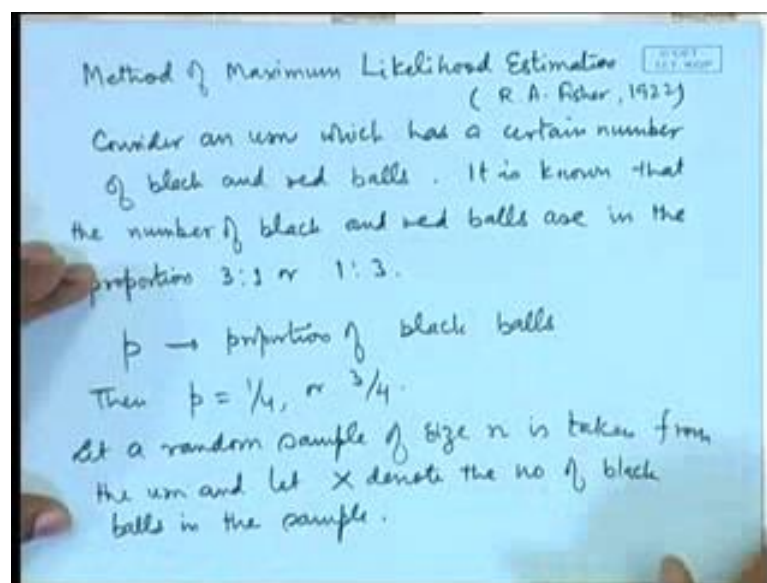 Method of Maximum Likelihood Estimation
( R A. Fisher, 1922)
Consider an urn which has a certain number
of black and red balls. It is known that
the number of black and red balls are in the
proportion 3:1 or 1:3.
p → proportion of black balls
Then p = 1/4, or 3/4.
Let a random sample of size n is taken from
the urn and let X denote the no of black
balls in the sample.